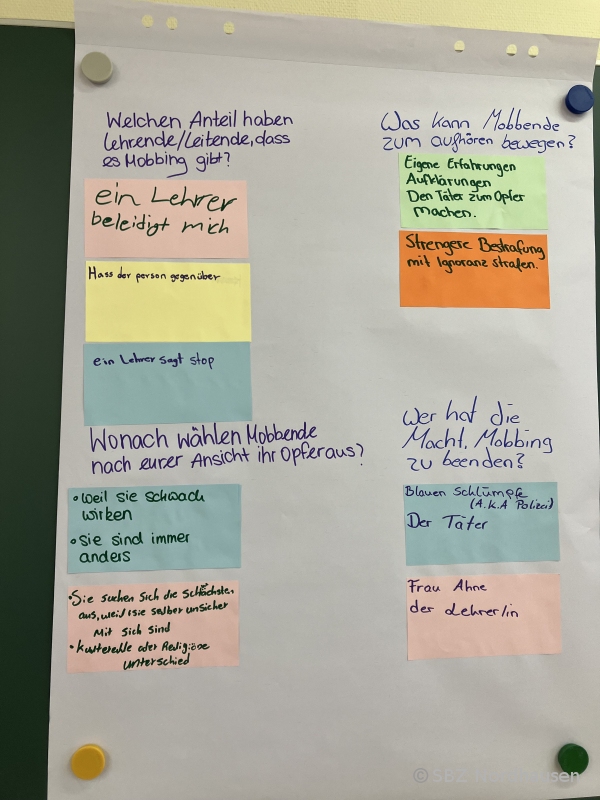 Welchen Anteil haben
Lehrende/Leitende, dass
es Mobbing gibt?
ein Lehrer
beleidigt mich
Hass der person gegenüber
ein Lehrer sagt stop
Was kann Mobbende
zum aufhören bewegen?
Eigene Erfahrungen
Aufklärungen
Den Täter zum Opfer
machen.
Strengere Bestrafung
mit Ignoranz strafen.
Wonach wählen Mobbende
nach eurer Ansicht ihr Opfer aus?
• Weil sie schwach
wirken
• Sie sind immer
anders
• Sie suchen sich die
aus, weil sie selber unsicher
mit sich sind
• oder
unterschied
Wer hat die
Macht, Mobbing
zu beenden?
Blauen Schlümpfe
(A.K.A Polizei)
Der Täter
Frau Ahne
der Lehrer/in
© SBZ